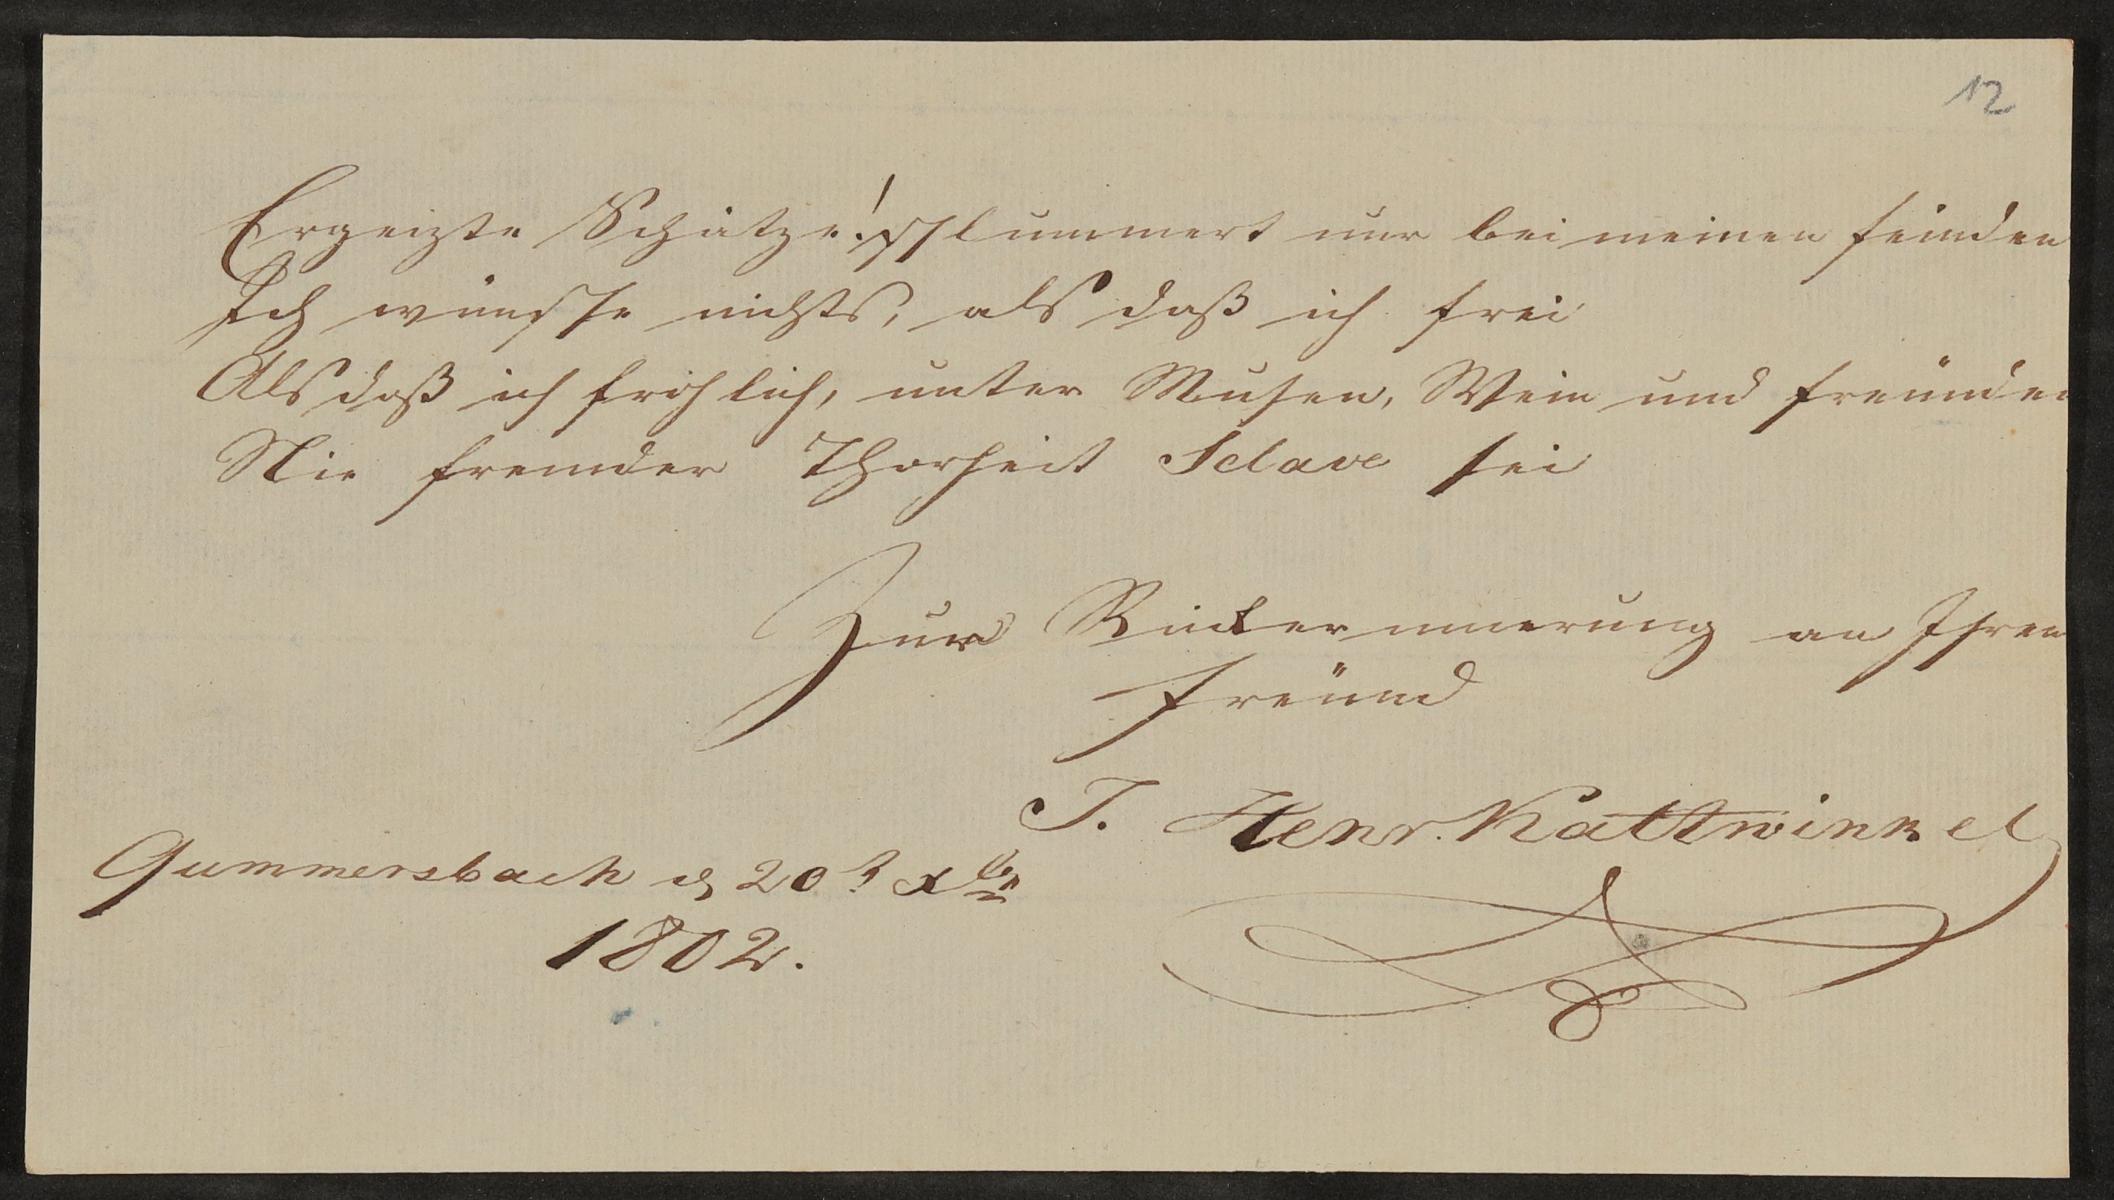 12
Ergeizte Schätze! schlummert nur bei meinen feinden
Ich wünsche nichts, als daß ich frei
Als daß ich fröhlich, unter Musen, Wein und freünden
Nie fremder Thorheit Sclave sei
Zur Rückerinnerung an Ihren
freünd
J. Henr. Kattwinkel
Gummersbach d 20t Xbr
1802.